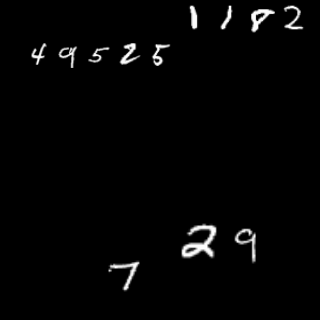 1182
49525
29
7